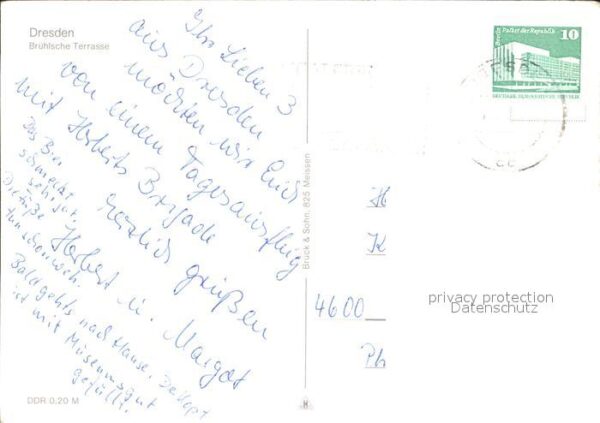 Dresden
Brühlsche Terrasse
Ihr Lieben 3
aus Dresden
möchten wir Euch
von einem Tagesausflug
mit Herberts Brigade
herzlich grüßen
Herbert u. Margot
Das Bier
schmeckt
sehr gut.
Die Füße
tun schon weh.
Bald gehts nach Hause. Der Kopf
ist mit Museumsgut
gefüllt.
DDR 0,20 M
Bruck & Sohn, 825 Meissen
Dresden Palast der Republik
10
DEUTSCHE DEMOKRATISCHE REPUBLIK
H
K
4600
Ph
privacy protection
Datenschutz